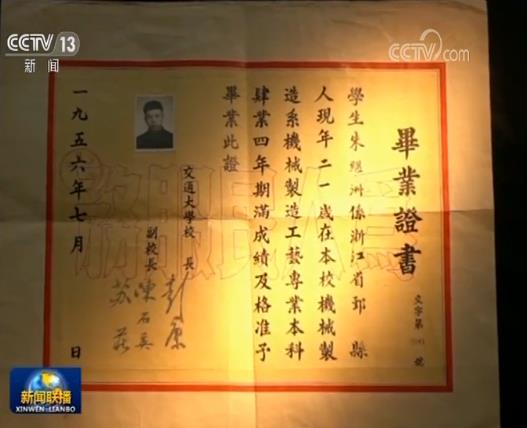 CCTV 13
新闻
CCTV.com
畢業證書
交字第 號
學生朱继洲係浙江省鄞縣
人現年二一歲在本校機械製
造系機械製造工藝專業本科
肄業四年期滿成績及格准予
畢業此證
交通大學校 長 彭康
副校長 陳石英
苏莊
一九五六年七月 日
為人民服務
新闻联播
XINWEN LIANBO